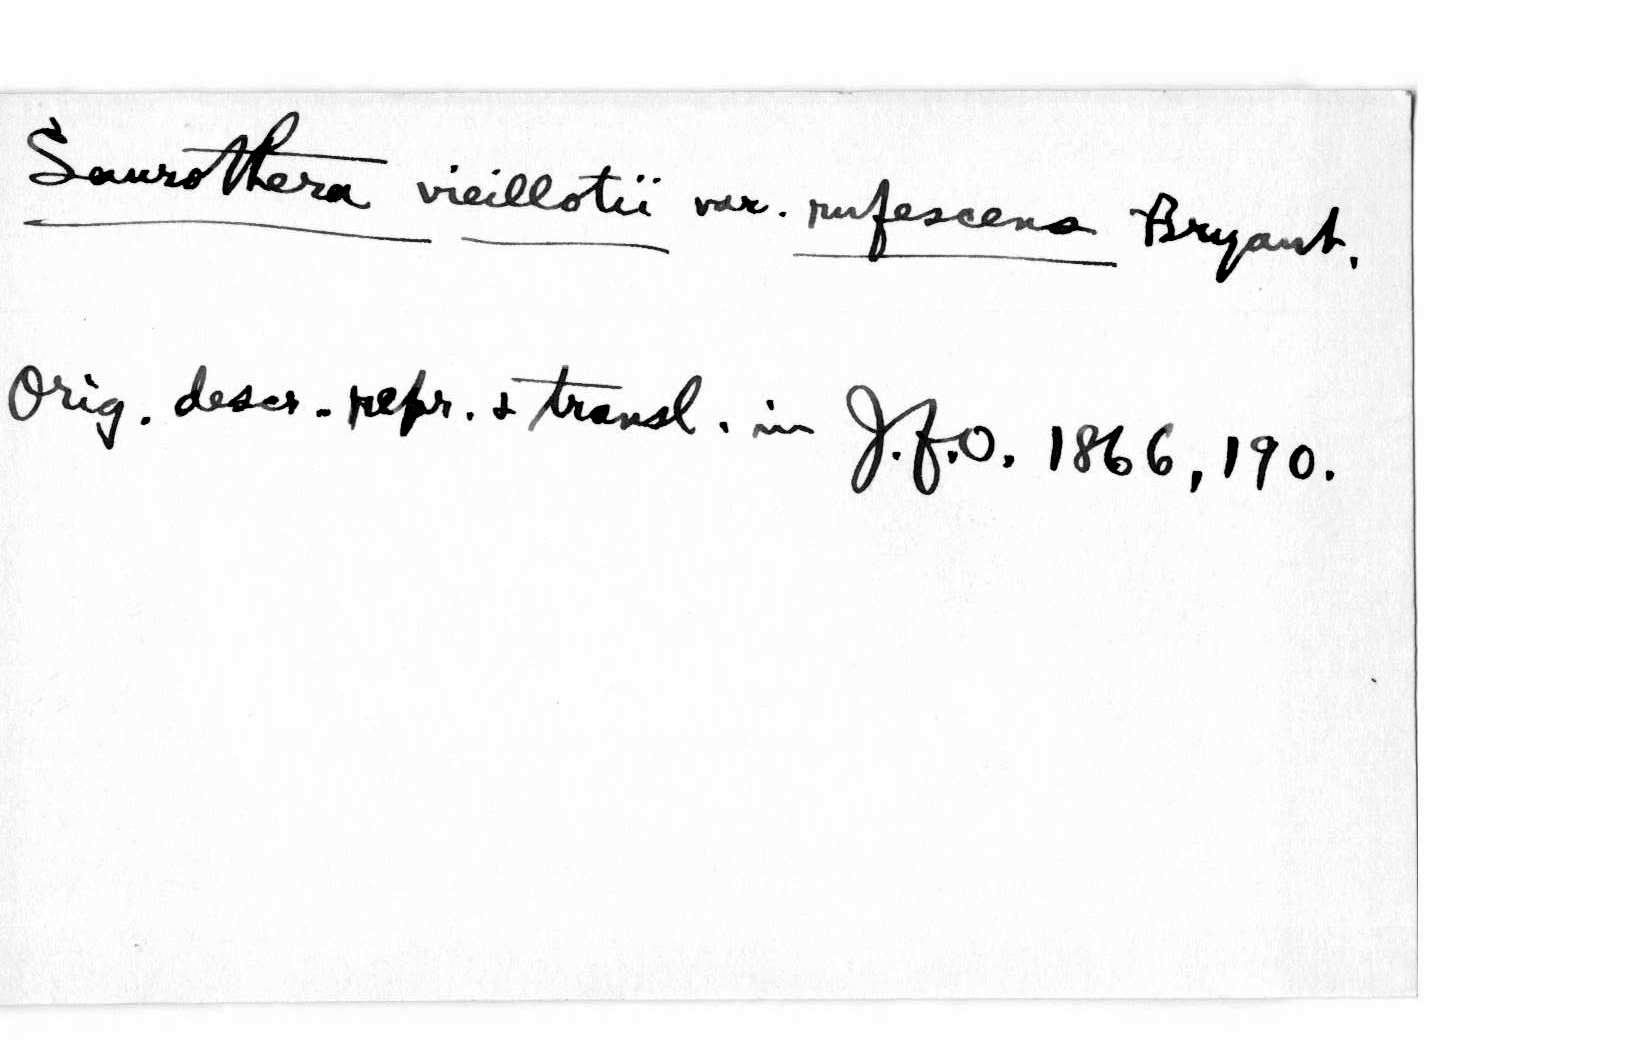 Saurothera vieillotii var. rufescens Bryant.
Orig. descr. repr. & transl. in J.f.O. 1866, 190.